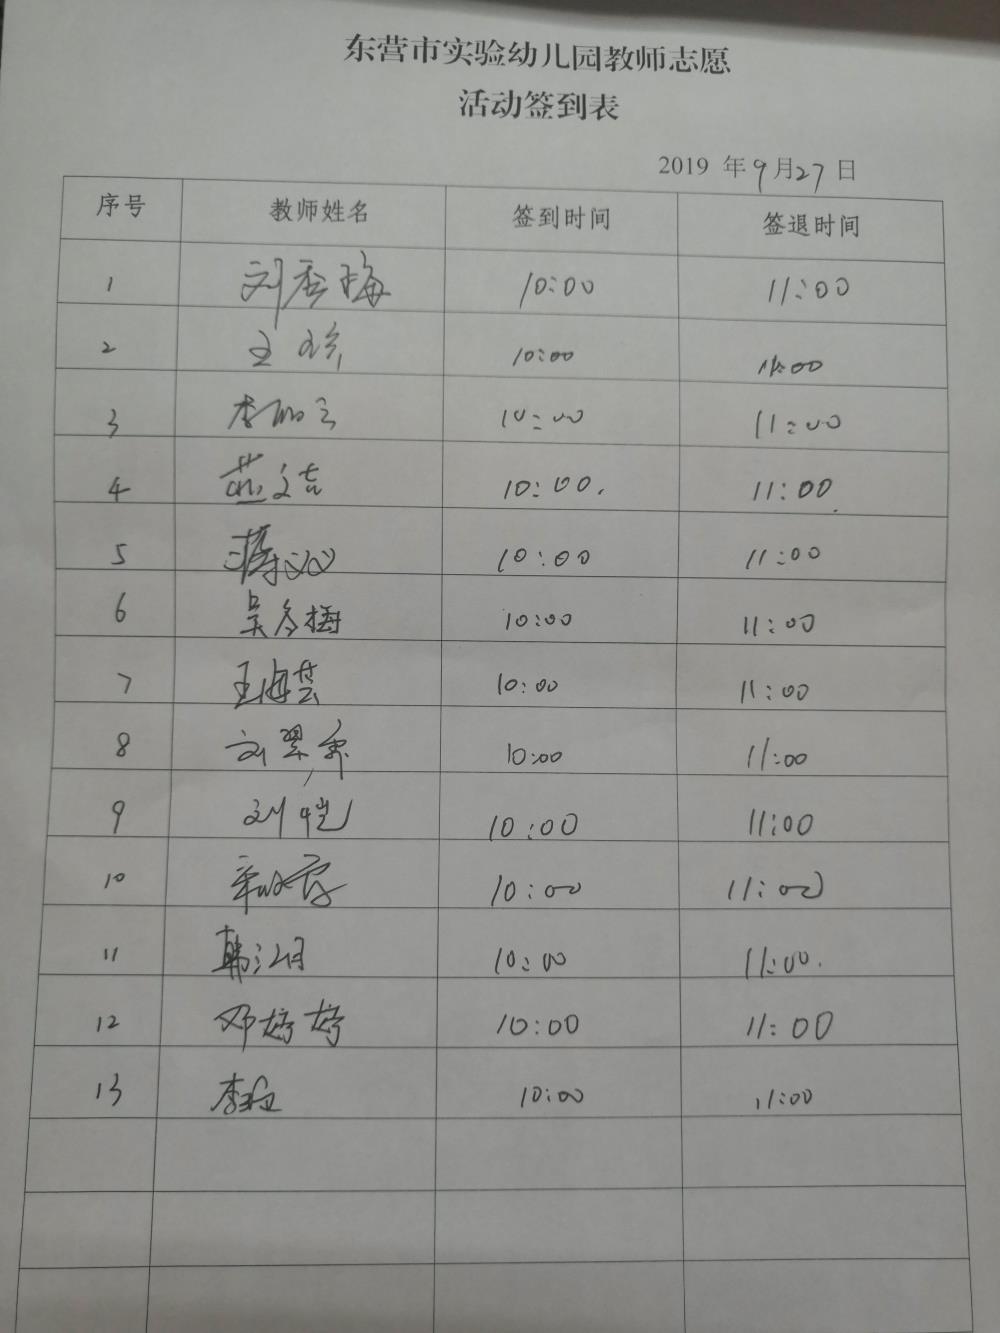 东营市实验幼儿园教师志愿
活动签到表
2019 年 9 月 27 日
序号 教师姓名 签到时间 签退时间
1 刘秀梅 10:00 11:00
2 王 10:00 11:00
3 李 10:00 11:00
4 燕文吉 10:00. 11:00
5 蒋 10:00 11:00
6 吴冬梅 10:00 11:00
7 王海芸 10:00 11:00
8 刘翠 10:00 11:00
9 刘恺 10:00 11:00
10 10:00 11:00
11 韩 10:00 11:00.
12 邓婷婷 10:00 11:00
13 李 10:00 11:00